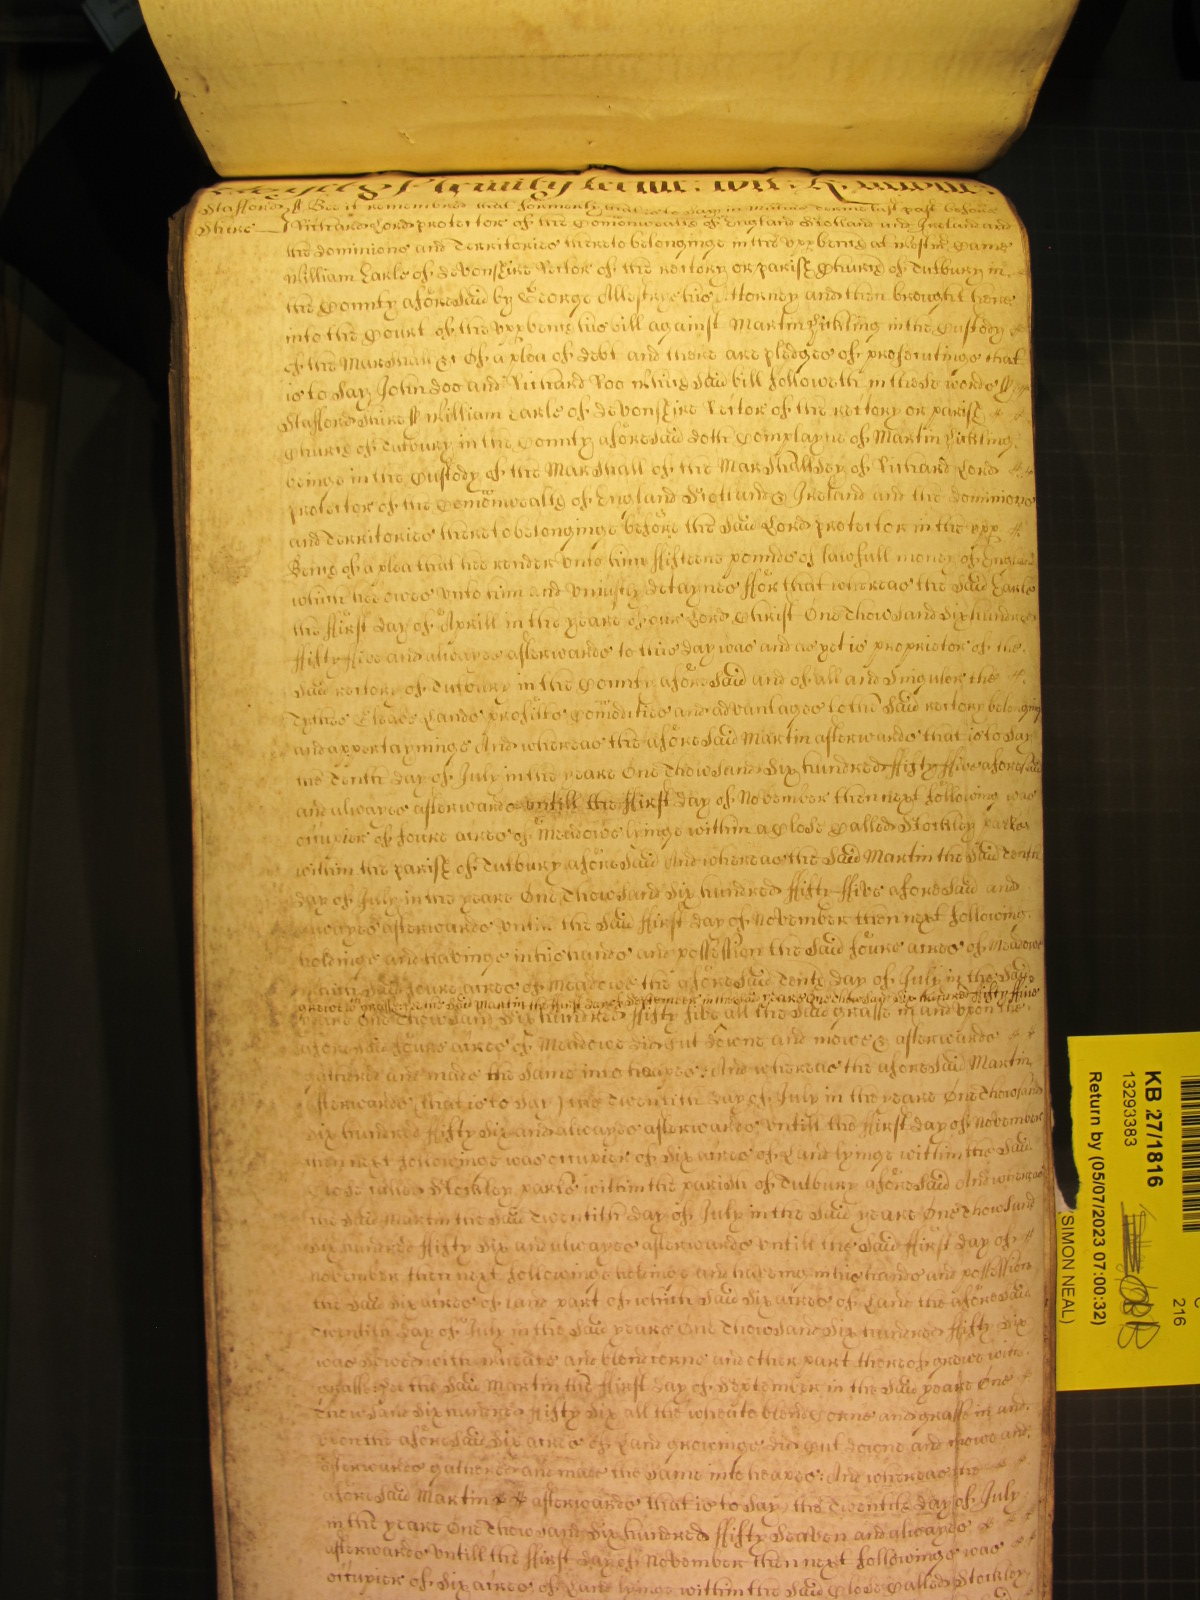 Stafford ss Bee it remembred that formerly that is to say in terme last past before
Shire Richard Lord protector of the Comonwealth of England Scotland and Ireland and
the dominions and Territories thereto belonginge in the upper bench at Westmr Came
William Earle of devonshire Rector of the rectory or parish Church of Tutbury in
the County aforesaid by George Allestry his Attorney and then brought here
into the Court of the upper bench his bill against Martin Hickling in the Custody
of the Marshall &c Of a plea of debt and there are pledges of prosecutinge that
is to say John doo and Richard Roo which said bill followeth in these words ss
Stafford shire ss William Earle of devonshire Rector of the rectory or parish
Church of Tutbury in the County aforesaid doth Complayne of Martin Hickling
beinge in the Custody of the Marshall of the Marshallsey of Richard Lord
protector of the Comonwealth of England Scotland & Ireland and the dominions
and Territories thereto belonginge before the said Lord protector in the upper
Bench of a plea that hee render unto him ffifteene poundes of lawfull money of England
which hee owes unto him and uniustly detaynes ffor that whereas the said Earle
the ffirst day of Aprill in the yeare of our Lord Christ One Thowsand Six hundred
ffifty ffive and alwayes afterwards to this day was and as yet is proprietor of the
said rectory of Tutbury in the County aforesaid and of all and Singuler the
Tythes Gleabe Lands profitts Comodities and advantages to the said rectory belonging
and appertayninge And whereas the aforesaid Martin afterwards that is to say
the Tenth day of July in the yeare One Thowsand Six hundred ffifty ffive aforesaid
and alwayes afterwards untill the ffirst day of November then next following was
occupier of foure acres of Meadowe lyinge within a Close Called Stockley parke
within the parish of Tutbury aforesaid And whereas the said Martin the said Tenth
day of July in the yeare One Thowsand Six hundred ffifty ffive aforesaid and
alwayes afterwards untill the said ffirst day of November then next following
holdinge and havinge in his hands and possession the said foure acres of Meadowe
said foure acres of Meadowe the aforesaid Tenth day of July in the said
the said Martin the ffirst day of September in the said yeare One Thowsand Six hundred ffifty ffive
yeare One Thowsand Six hundred ffifty five all the said grasse in and upon the
aforesaid foure acres of Meadowe did Cut downe and mowe & afterwards
gathered and made the same into : And whereas the aforesaid Martin
afterwards (that is to say) the Twentith day of July in the yeare One Thowsand
Six hundred ffifty Six and alwayes afterwards untill the ffirst day of November
then next followinge was occupier of Six acres of Land lyinge within the said
Close Called Stockley parke within the parish of Tutbury aforesaid And whereas
the said Martin the said Twentith day of July in the said yeare One Thowsand
Six hundred ffifty Six and alwayes afterwards untill the said ffirst day of
November then next followinge holdinge and haveing in his hands and possession
the said Six acres of Land part of which said Six acres of Land the aforesaid
Twentith day of July in the said yeare One Thowsand Six hundred ffifty Six
was sowed with wheate and blend corne and other part thereof growed with
grasse: hee the said Martin the ffirst day of September in the said yeare One
Thowsand Six hundred ffifty Six all the wheate blend Corne and grasse in and
upon the aforesaid Six acres of Land growinge did Cut downe and mowe and
afterwards gathered and made the same into heapes: And whereas the
aforesaid Martin afterwards that is to say the Twentith day of July
in the yeare One Thowsand Six hundred ffifty Seaven and alwayes
afterwards untill the ffirst day of November then next followinge was
occupier of Six acres of Land lyinge within the said Close Called Stockley
KB 27/1816
13293383
Return by (05/07/2023 07:00:32)
SIMON NEAL)
216